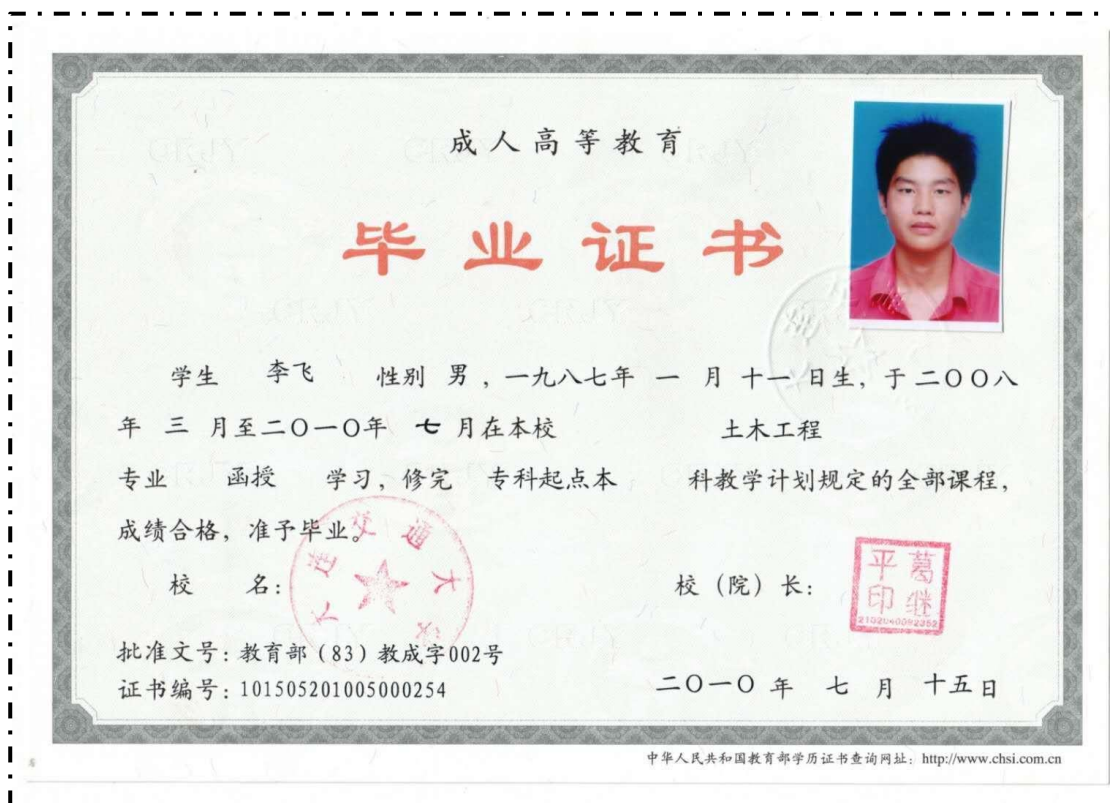 成人高等教育
毕业证书
学生 李飞 性别 男，一九八七年 一 月 十一 日生，于二〇〇八
年 三 月至二〇一〇年 七 月在本校 土木工程
专业 函授 学习，修完 专科起点本 科教学计划规定的全部课程，
成绩合格，准予毕业。
大连交通大学
校 名： 校（院）长：
葛继平印
2102040082352
批准文号：教育部（83）教成字002号
证书编号：101505201005000254
二〇一〇 年 七 月 十五日
中华人民共和国教育部学历证书查询网址：http://www.chsi.com.cn